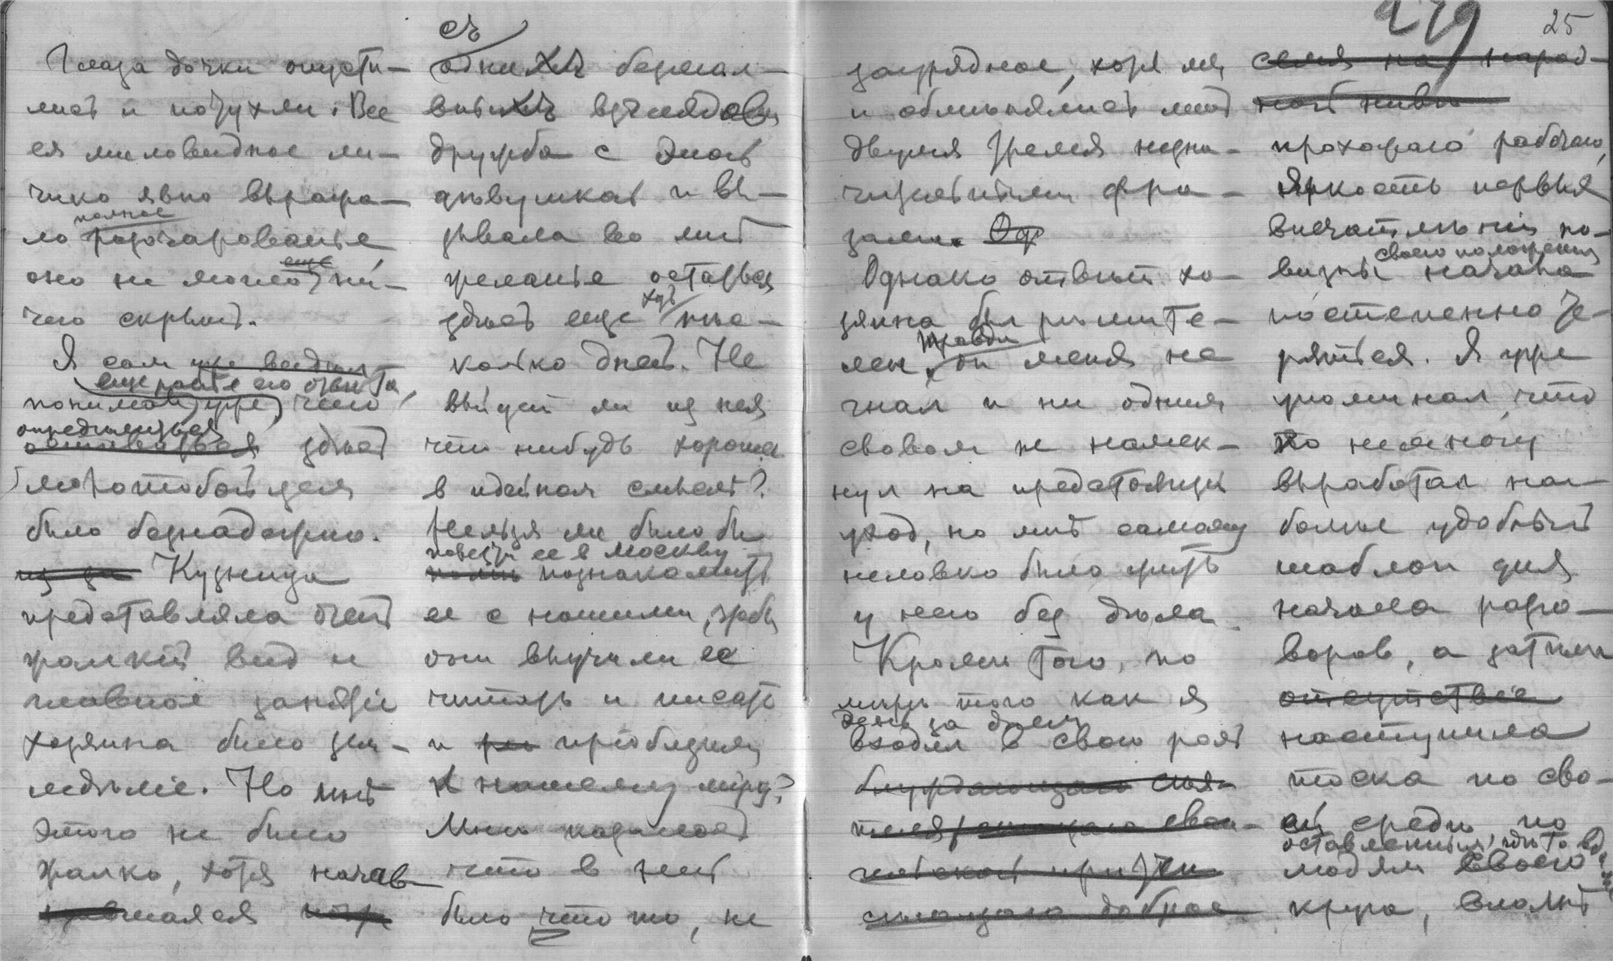 279
25
Глаза дочки опусти-
лись и потухли. Все
ея миловидное ли-
чико явно выража-
полное
ло разочарованье
еще
оно не могло ни-
чего скрыть.
Я сам уже видел
еще раньше его ответа,
понимал уже, чего
определиться
оставаться здесь
молотобойцем
было безнадежно.
из за Кузница
представляла очень
жалкий вид и
главное занятие
хозяина было зем-
леделіе. Но мне
этого не было
жалко, хотя начав-
шаяся
съ
одних
дружба с этой
девушкой и вы-
зывала во мне
желанье остаться
хоть
здесь еще нес-
колько дней. Не
выйдет ли из нея
что нибудь хорошее
в идейном смысле?
Нельзя ли было бы
повезти ее в Москву
познакомить
ее с нашими, чтобы
они выучили ее
читать и писать
и приобщили
к нашему миру?
Мне казалось
что в ней
было что то, не
заурядное, хотя мы
и обменялись лишь
двумя тремя незна-
чительными фра-
зами.
Однако ответ хо-
зяина был решите-
Правда
лен, он меня не
гнал и ни одним
словом не намек-
нул на предстоящий
уход, но мне самому
неловко было жить
у него без дела.
Кроме того, по
мере того как я
день за днем
входил в свою роль
семя на народ-
ной ниве
прохожаго рабочаго,
яркость первых
впечатлений но-
своего положения
визны начала
постепенно те-
ряться. Я уже
упоминал, что
по немногу
выработал наи-
более удобный
шаблон для
начала разго-
воров, а затем
отсутствие
наступила
тоска по сво-
ей среде, по
оставленным
людям своего
круга, вполне